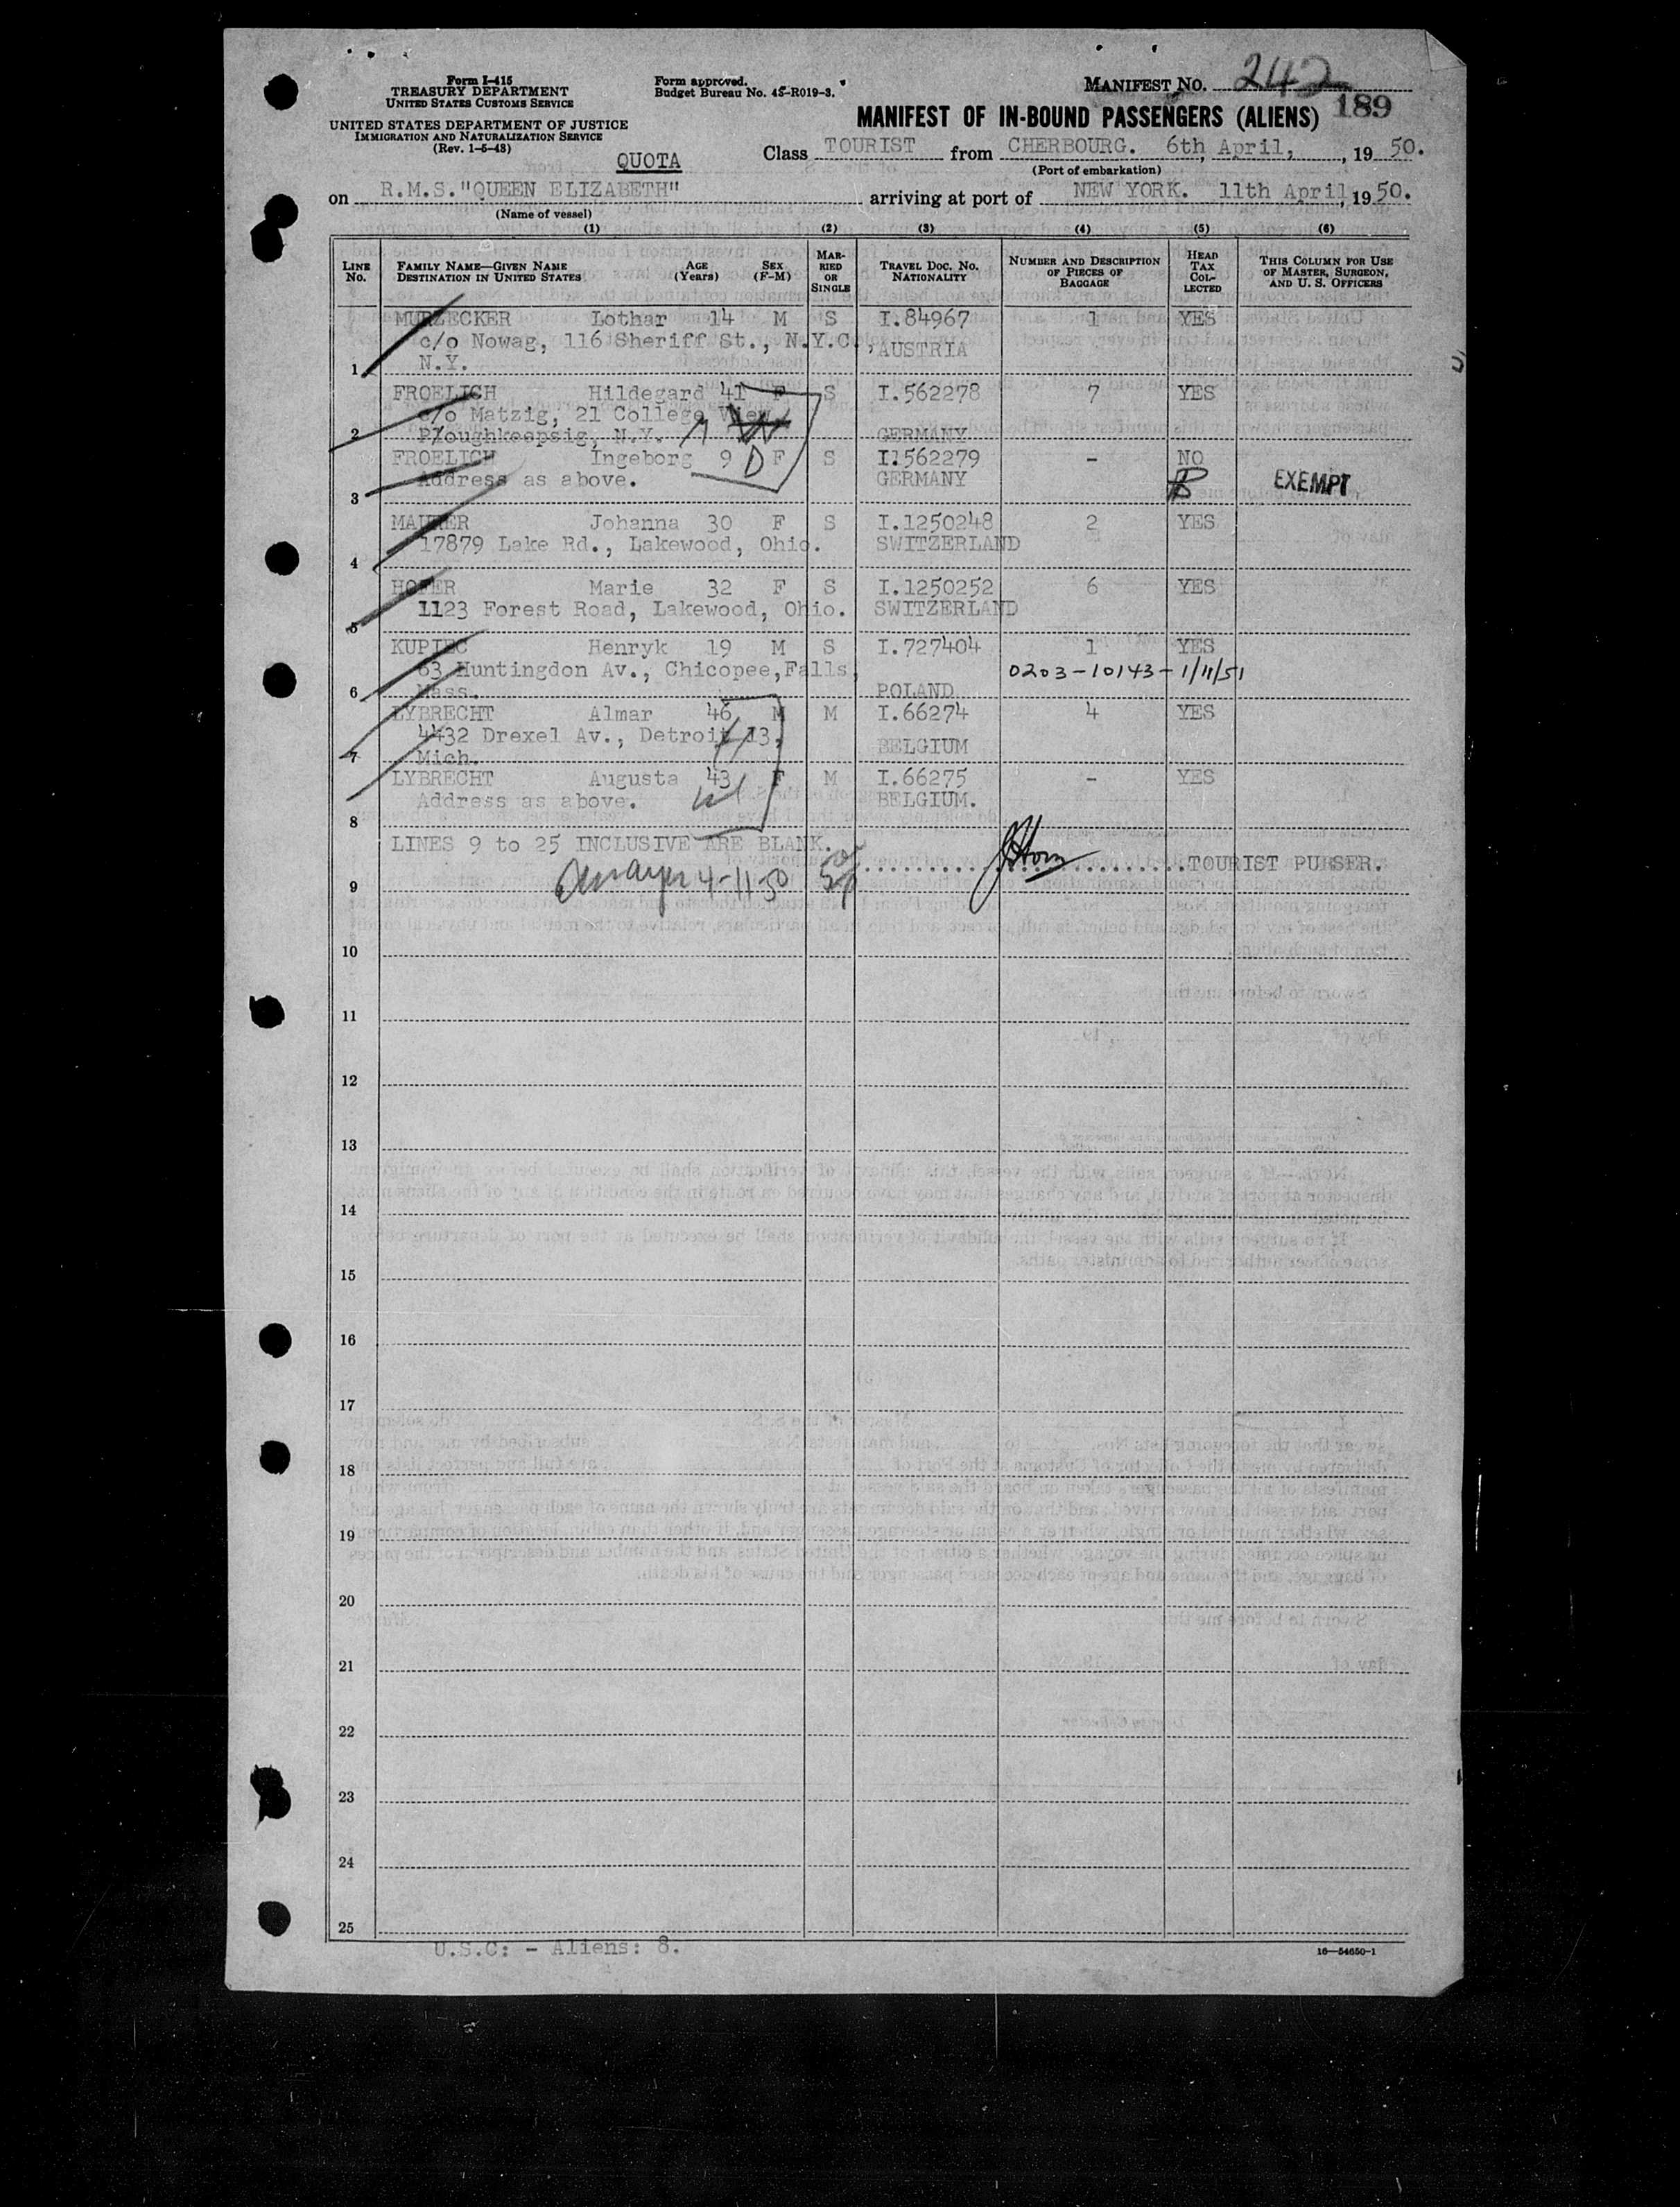 Form I-415
TREASURY DEPARTMENT
UNITED STATES CUSTOMS SERVICE
UNITED STATES DEPARTMENT OF JUSTICE
IMMIGRATION AND NATURALIZATION SERVICE
(Rev. 1-5-48)
Form approved.
Budget Bureau No. 43-R019-3.
MANIFEST NO. 242
189
MANIFEST OF IN-BOUND PASSENGERS (ALIENS)
QUOTA
Class TOURIST from CHERBOURG. 6th April, , 19 50.
(Port of embarkation)
on R.M.S."QUEEN ELIZABETH" arriving at port of NEW YORK. 11th April, 19 50.
(Name of vessel)
(1) (2) (3) (4) (5) (6)
LINE NO. FAMILY NAME—GIVEN NAME DESTINATION IN UNITED STATES AGE (Years) SEX (F-M) MARRIED OR SINGLE TRAVEL DOC. NO. NATIONALITY NUMBER AND DESCRIPTION OF PIECES OF BAGGAGE HEAD TAX COLLECTED THIS COLUMN FOR USE OF MASTER, SURGEON, AND U. S. OFFICERS
MURZECKER Lothar 14 M S I.84967 1 YES
c/o Nowag, 116 Sheriff St., N.Y.C., AUSTRIA
1 N.Y.
FROELICH Hildegard 41 F S I.562278 7 YES
c/o Matzig, 21 College View,
2 Ploughkeepsig, N.Y. GERMANY
FROELICH Ingeborg 9 D F S I.562279 - NO
Address as above. GERMANY EXEMPT
3
MAURER Johanna 30 F S I.1250248 2 YES
17879 Lake Rd., Lakewood, Ohio. SWITZERLAND
4
HOFER Marie 32 F S I.1250252 6 YES
1123 Forest Road, Lakewood, Ohio. SWITZERLAND
5
KUPIEC Henryk 19 M S I.727404 1 YES
63 Huntingdon Av., Chicopee,Falls, 0203-10143-1/11/51
6 Mass. POLAND
LYBRECHT Almar 46 M M I.66274 4 YES
4432 Drexel Av., Detroit 13, BELGIUM
7 Mich.
LYBRECHT Augusta 43 F M I.66275 - YES
Address as above. BELGIUM.
8
LINES 9 to 25 INCLUSIVE ARE BLANK.
TOURIST PURSER.
4-11-50
9
10
11
12
13
14
15
16
17
18
19
20
21
22
23
24
25
U.S.C: - Aliens: 8.
16—54650-1